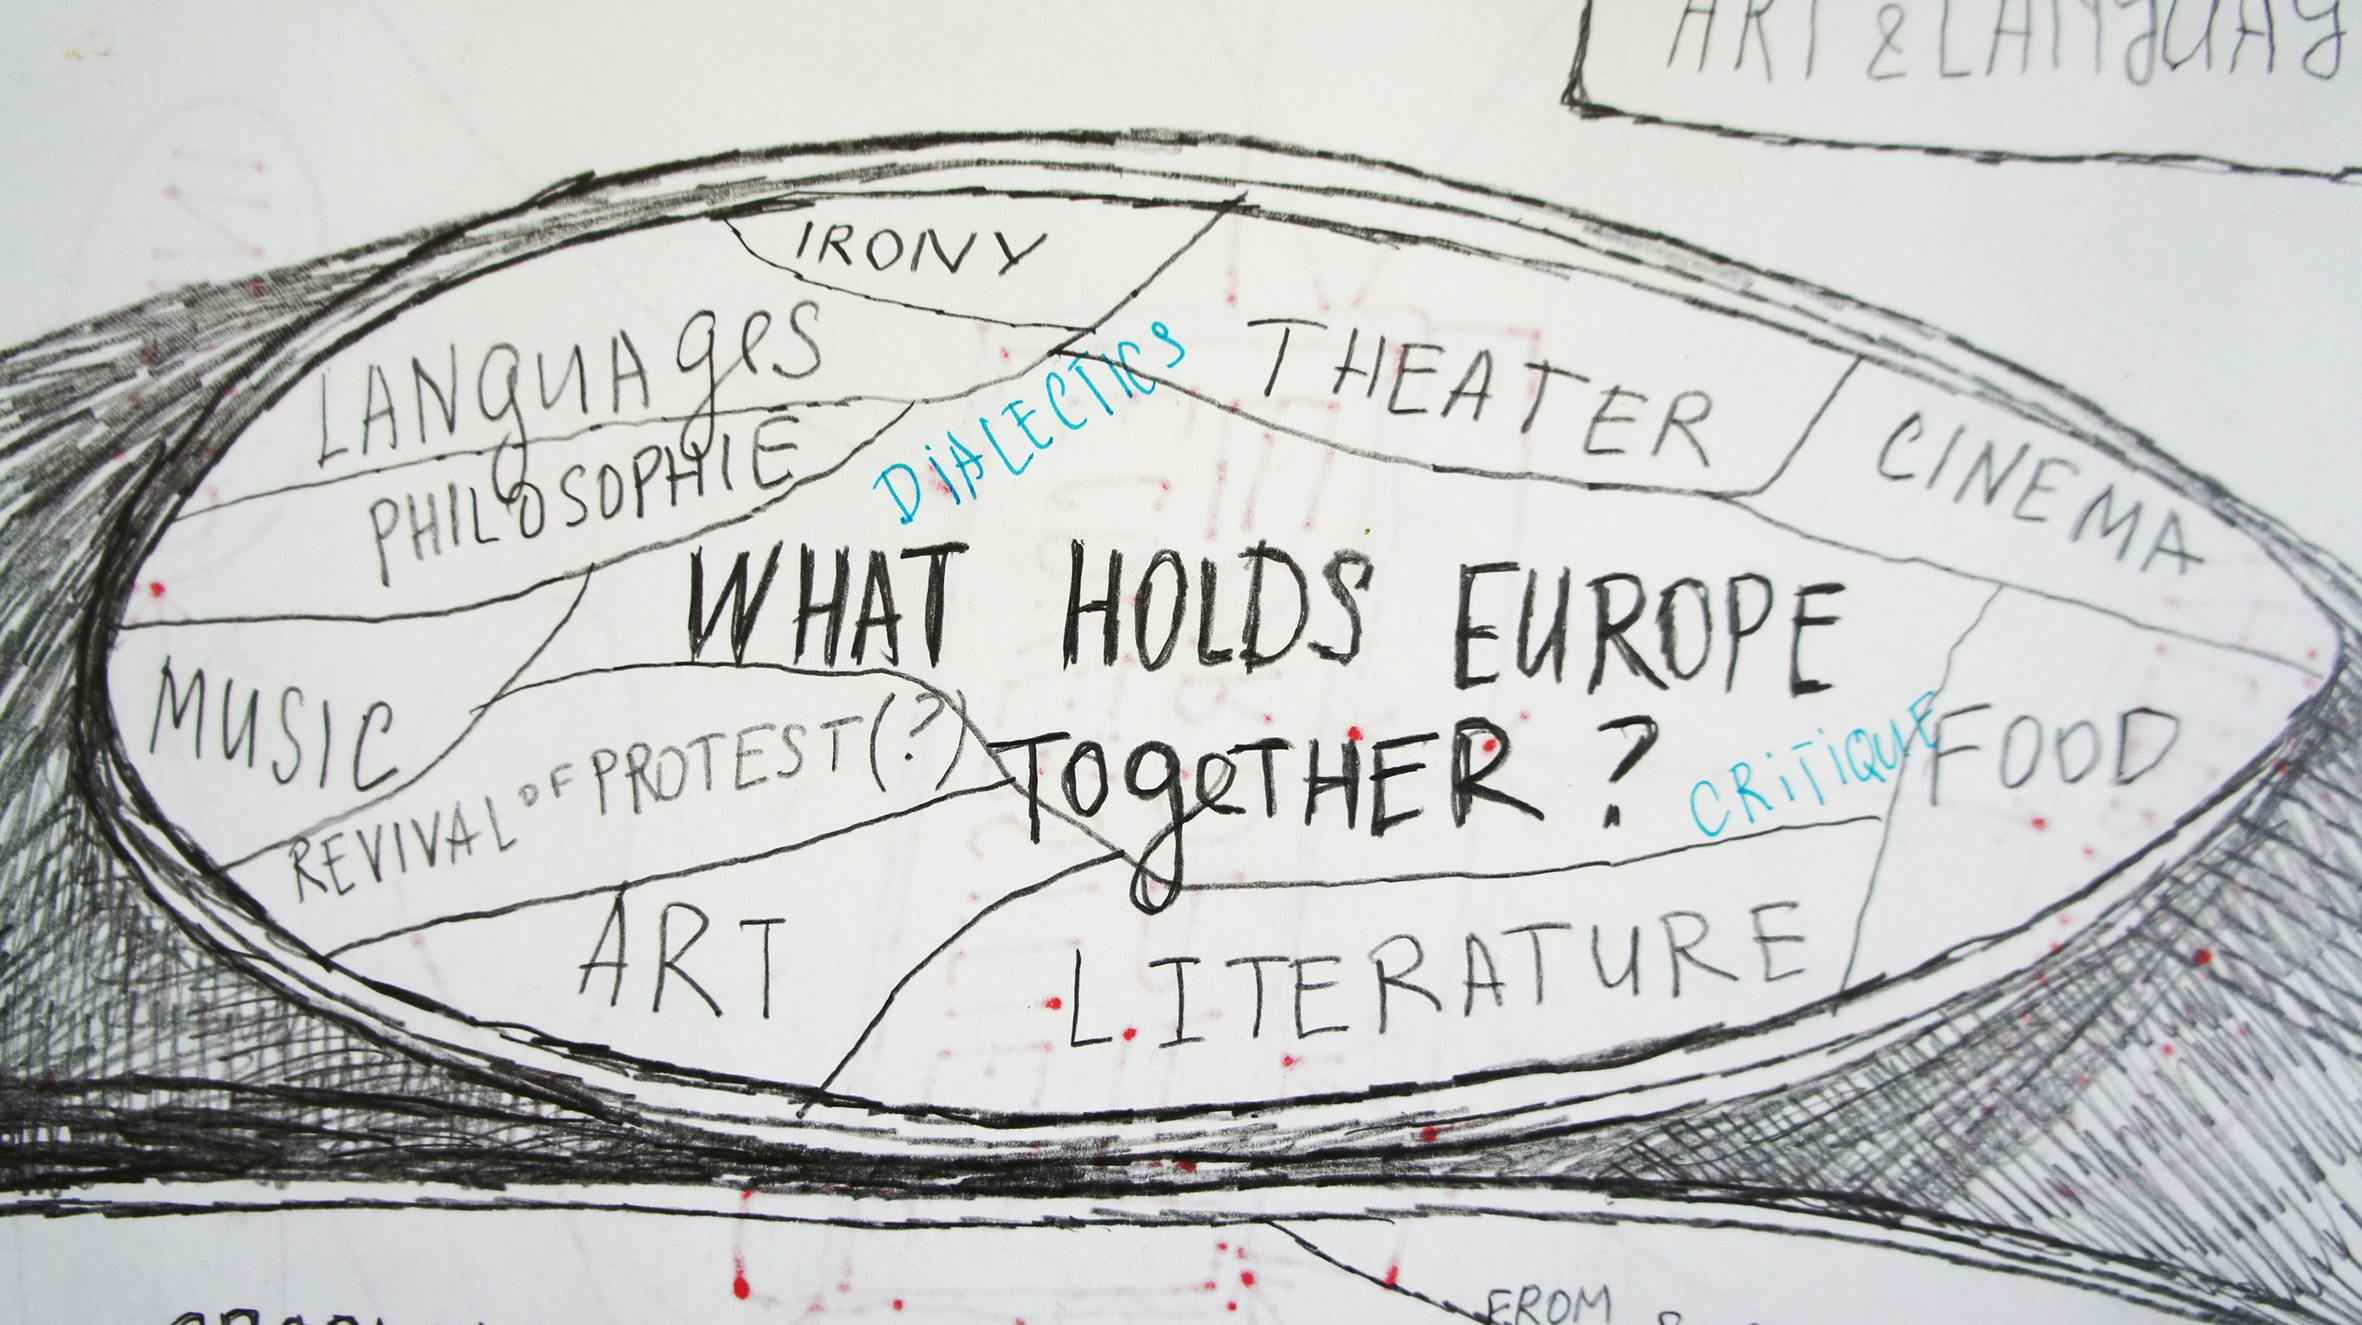 ART & LANGUAG
IRONY
LANGUAGES
THEATER
DIALECTICS
CINEMA
PHILOSOPHIE
WHAT HOLDS EUROPE
TOGETHER ?
MUSIC
REVIVAL OF PROTEST (?)
CRITIQUE
FOOD
ART
LITERATURE
FROM